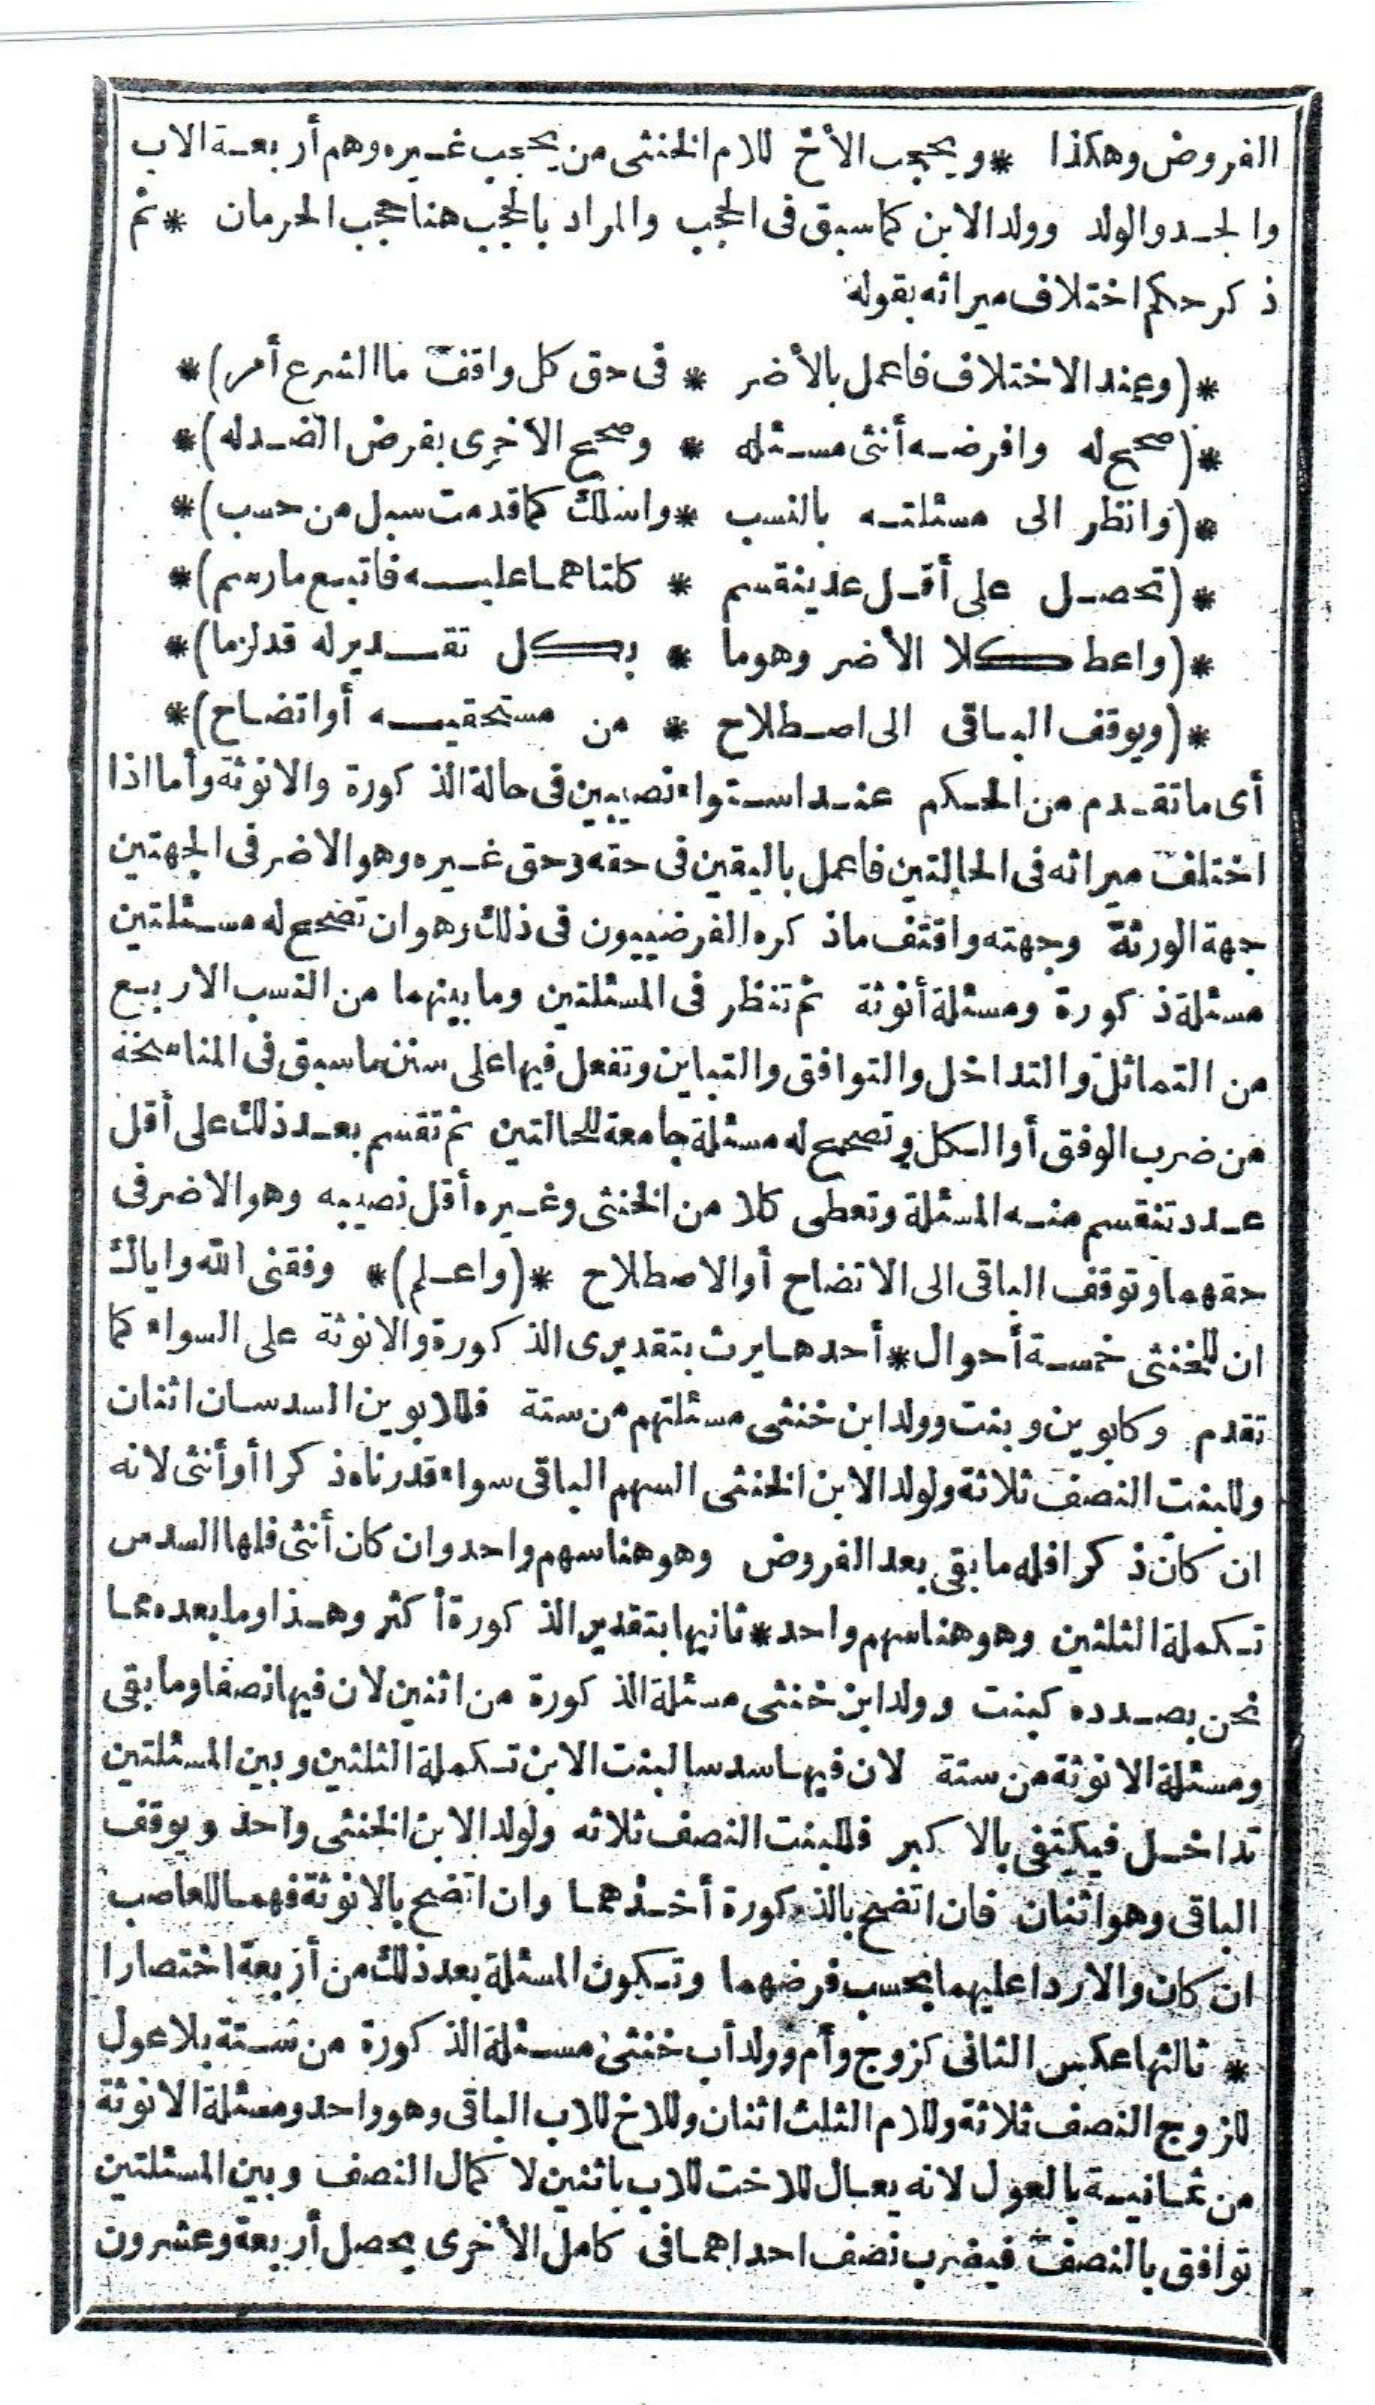 الفروض وهكذا * ويحجب الأخ للام الخنثى من يحجب غيره وهم أربعة الاب
والجد والولد وولد الابن كما سبق فى الحجب والمراد بالحجب هنا حجب الحرمان * ثم
ذكر حكم اختلاف ميراثه بقوله
*(وعند الاختلاف فاعمل بالأضر * فى حق كل واقف ما الشرع أمر)*
*(صحح له وافرضه أنثى مسئله * وصحح الأخرى بفرض الضد له)*
*(وانظر الى مسئلته بالنسب * واسلك كما قدمت سبل من حسب)*
*(تحصل على أقل عد ينقسم * كلتاهما عليه فاتبع ما رسم)*
*(واعط كلا الأضر وهو ما * بكل تقدير له قد لزما)*
*(ويوقف الباقى الى اصطلاح * من مستحقيه أو اتضاح)*
أى ما تقدم من الحكم عند استواء نصيبين فى حالة الذكورة والانوثة وأما اذا
اختلف ميراثه فى الحالتين فاعمل باليقين فى حقه وحق غيره وهو الاضر فى الجهتين
جهة الورثة وجهته واقتف ما ذكره الفرضييون فى ذلك وهو ان تصحح له مسئلتين
مسئلة ذكورة ومسئلة أنوثة ثم تنظر فى المسئلتين وما بينهما من النسب الاربع
من التماثل والتداخل والتوافق والتباين وتفعل فيها على سنن ما سبق فى المناسخة
من ضرب الوفق أو الكل وتصحح له مسئلة جامعة للحالتين ثم تقسم بعد ذلك على أقل
عدد تنقسم منه المسئلة وتعطى كلا من الخنثى وغيره أقل نصيبه وهو الاضر فى
حقهما وتوقف الباقى الى الاتضاح أو الاصطلاح *(واعلم)* وفقنى الله واياك
ان للخنثى خمسة أحوال * أحدها يرث بتقديرى الذكورة والانوثة على السواء كما
تقدم وكابوين وبنت وولد ابن خنثى مسئلتهم من ستة فللابوين السدسان اثنان
وللبنت النصف ثلاثة ولولد الابن الخنثى السهم الباقى سواء قدرناه ذكرا أو أنثى لانه
ان كان ذكرا فله ما بقى بعد الفروض وهو هنا سهم واحد وان كان أنثى فلها السدس
تكملة الثلثين وهو هنا سهم واحد * ثانيها بتقدير الذكورة أكثر وهذا وما بعده مما
نحن بصدده كبنت وولد ابن خنثى مسئلة الذكورة من اثنين لان فيها نصفا وما بقى
ومسئلة الانوثة من ستة لان فيها سدسا لبنت الابن تكملة الثلثين وبين المسئلتين
تداخل فيكتفى بالاكبر فللبنت النصف ثلاثه ولولد الابن الخنثى واحد ويوقف
الباقى وهو اثنان فان اتضح بالذكورة أخذهما وان اتضح بالانوثة فهما للعاصب
ان كان والا ردا عليهما بحسب فرضهما وتكون المسئلة بعد ذلك من أربعة اختصارا
* ثالثها عكس الثانى كزوج وأم وولد أب خنثى مسئلة الذكورة من ستة بلا عول
للزوج النصف ثلاثة وللام الثلث اثنان وللاخ للاب الباقى وهو واحد ومسئلة الانوثة
من ثمانية بالعول لانه يعال للاخت للاب باثنين لا كمال النصف وبين المسئلتين
توافق بالنصف فيضرب نصف احداهما فى كامل الأخرى يحصل أربعة وعشرون